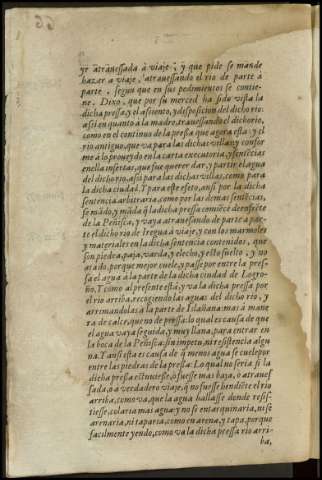 yr atrauessada à viaje; y que pide se mande
hazer a viaje, atrauessando el rio de parte à
parte, segun que en sus pedimientos se contie
ne. Dixo, que por su merced ha sido vista la
dicha pressa y el asiento, y disposicion del dicho rio:
assi en quanto a la madre, atrauessando el dicho rio,
como en el continuo de la pressa que agora està: y el
rio antiguo, que va para las dichas villas y confor
me a lo proueydo en la carta executoria, y sentēcias
en ella insertas, que fue querer dar, y partir el agua
del dicho rio, assi para las dichas villas, como para
la dicha ciudad. Y para este efeto, ansi por la dicha
sentencia arbitraria, como por las demas sentēcias,
se mādò, y māda q̄ la dicha pressa comiēce
de la Peñisca, y vaya atrauesando de parte a par-
te el dicho rio de Iregua à viaje, y con los marmoles
y materiales en la dicha sentencia contenidos, que
son piedra, paja, varda, y elecho, y esto suelto; y no
atado, porque mejor cuele, y passe por entre la pres-
sa el agua à la parte de la dicha ciudad de Logro-
ño. Y como al presente està, y va la dicha pressa por
el rio arriba, recogiendo las aguas del dicho rio, y
arrimandolas à la parte de Islallana: mas à mane
ra de calce, que no de pressa: lo qual es causa de que
el agua vaya seguida, y muy llana, para entrar en
la boca de la Peñisca: sin impetu, ni resistencia algu
na. Y ansi esta es causa de q̄ menos agua se cuele por
entre las piedras de la pressa: Lo qual no seria si la
dicha pressa estuuiesse, ò fuesse mas baja, ò atraues
sada, ò a verdadero viaje, q̄ no fuesse hendiēdo el rio
arriba, como va, que la agua hallasse donde resis-
tiesse, colaria mas agua: y no se entarquinaria, ni se
arenaria, ni taparia, como en arena, y tapa, porque
facilmente yendo, como va la dicha pressa rio arri-
ba,